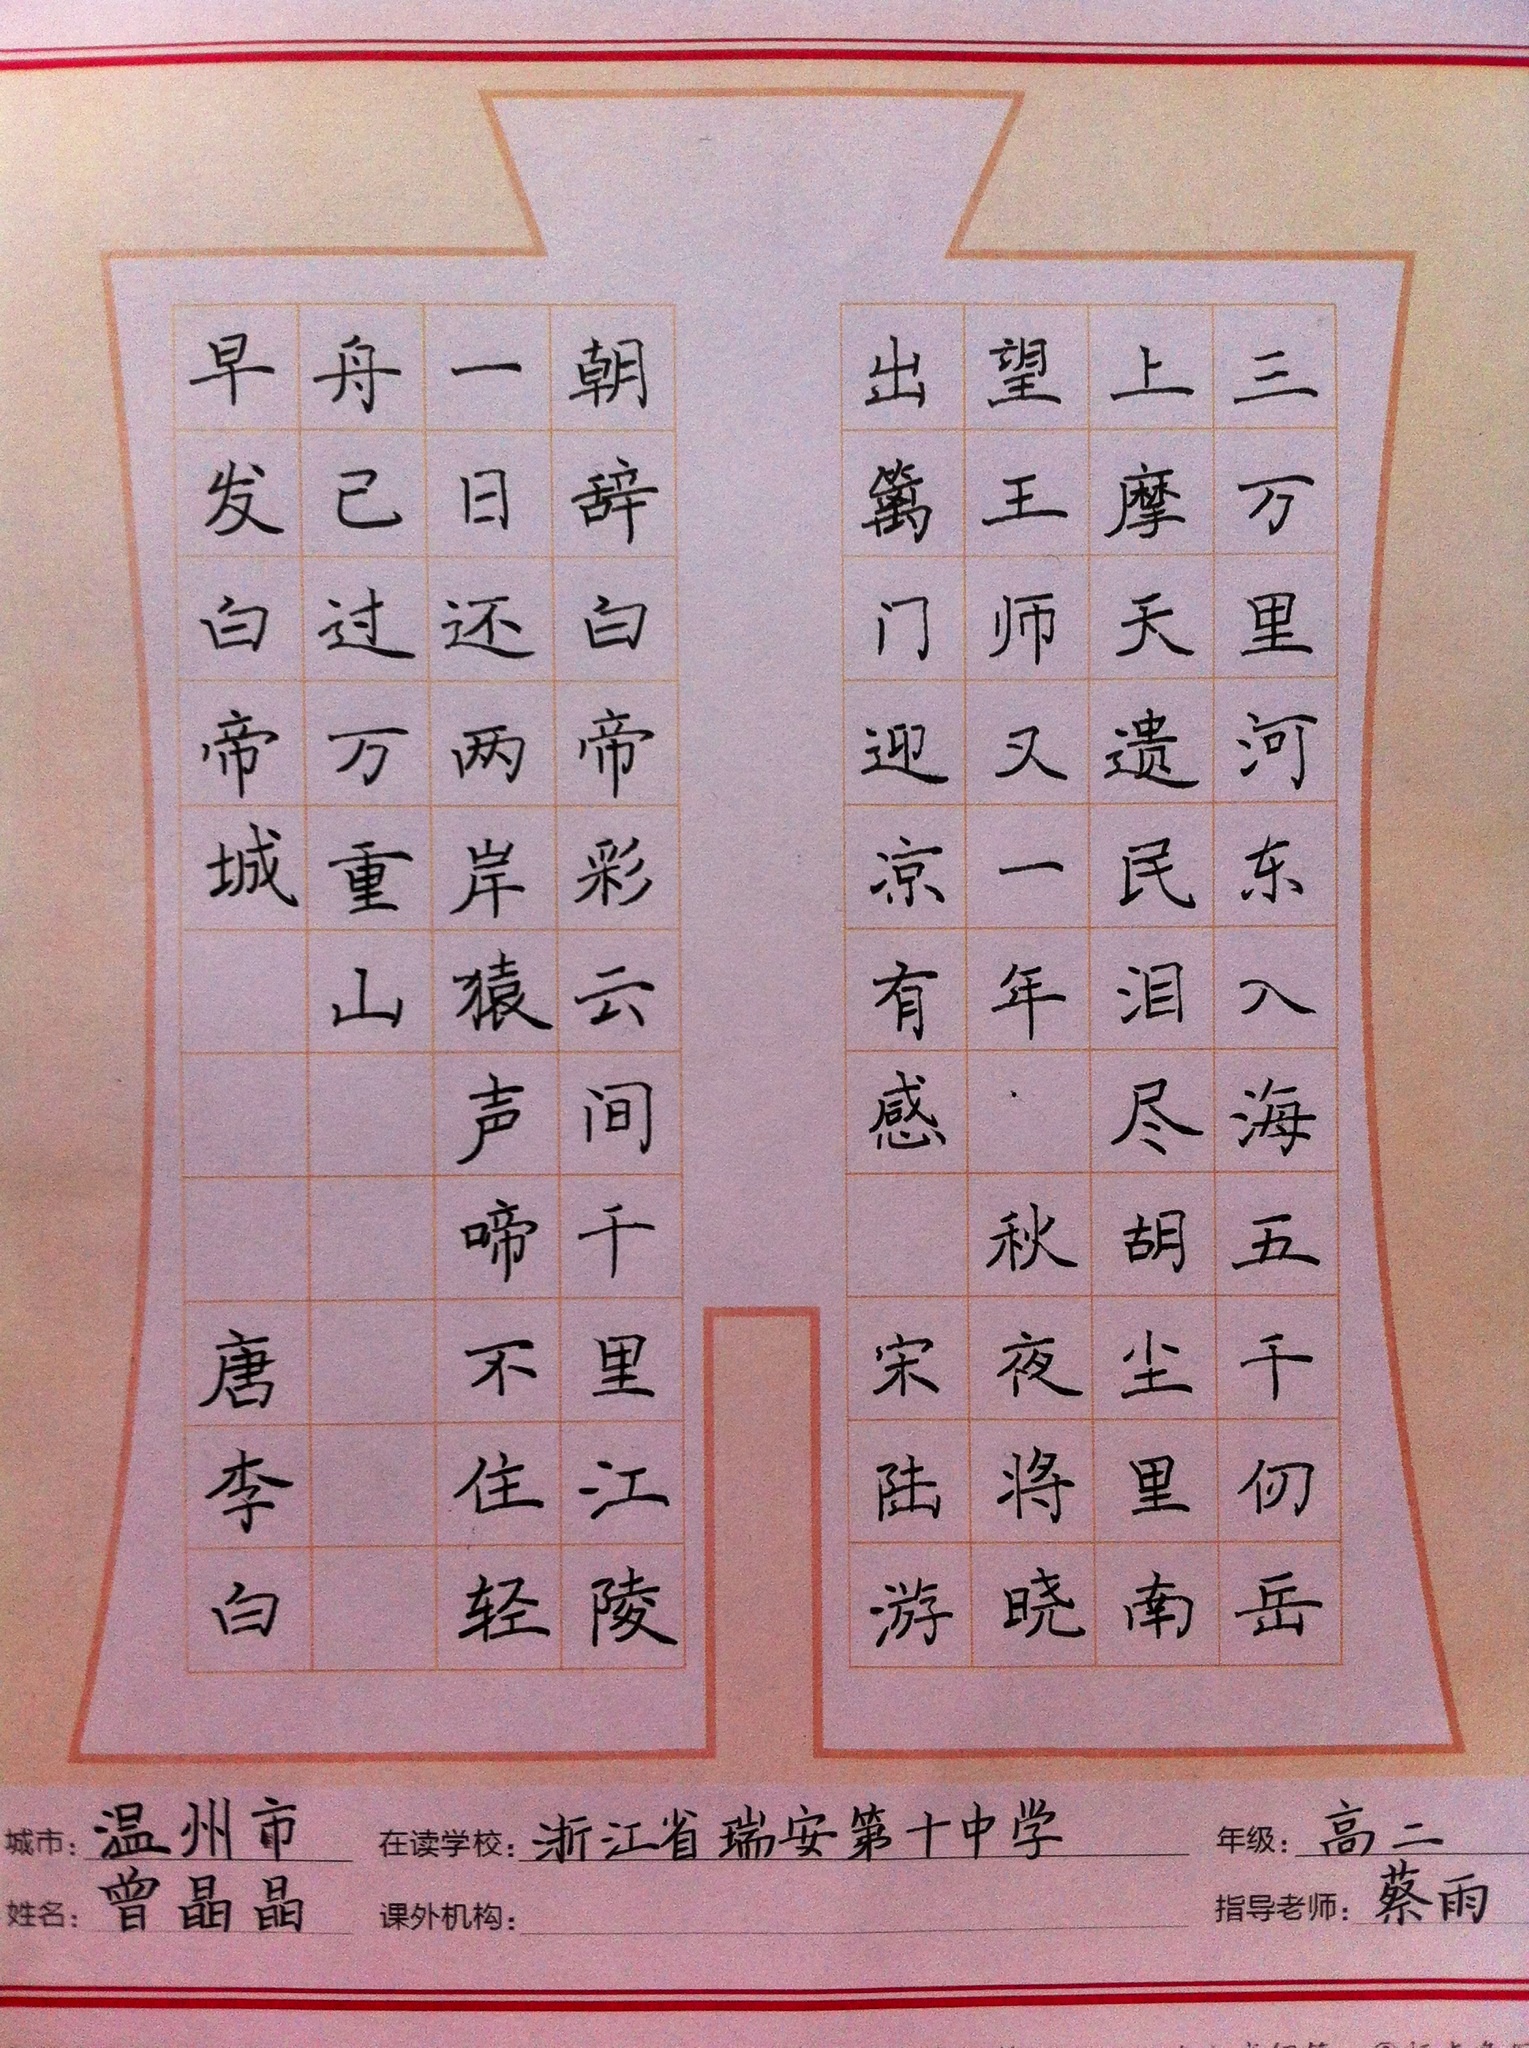 三万里河东入海五千仞岳
上摩天遗民泪尽胡尘里南
望王师又一年 秋夜将晓
出篱门迎凉有感 宋陆游
朝辞白帝彩云间千里江陵
一日还两岸猿声啼不住轻
舟已过万重山
早发白帝城 唐李白
城市：温州市 在读学校：浙江省瑞安第十中学 年级：高二
姓名：曾晶晶 课外机构： 指导老师：蔡雨